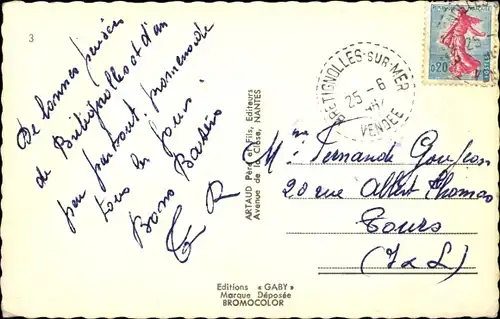 3
De bonnes pensées
de Brétignolles et d'un
peu partout, promenade
tous les jours.
Bons Baisers
ARTAUD Père et Fils, Editeurs
Avenue de la Close, NANTES
BRETIGNOLLES-SUR-MER
25-6
VENDEE
0,20
Mme Fernande
20 rue Albert Thomas
Tours
(I & L)
Editions « GABY »
Marque Déposée
BROMOCOLOR